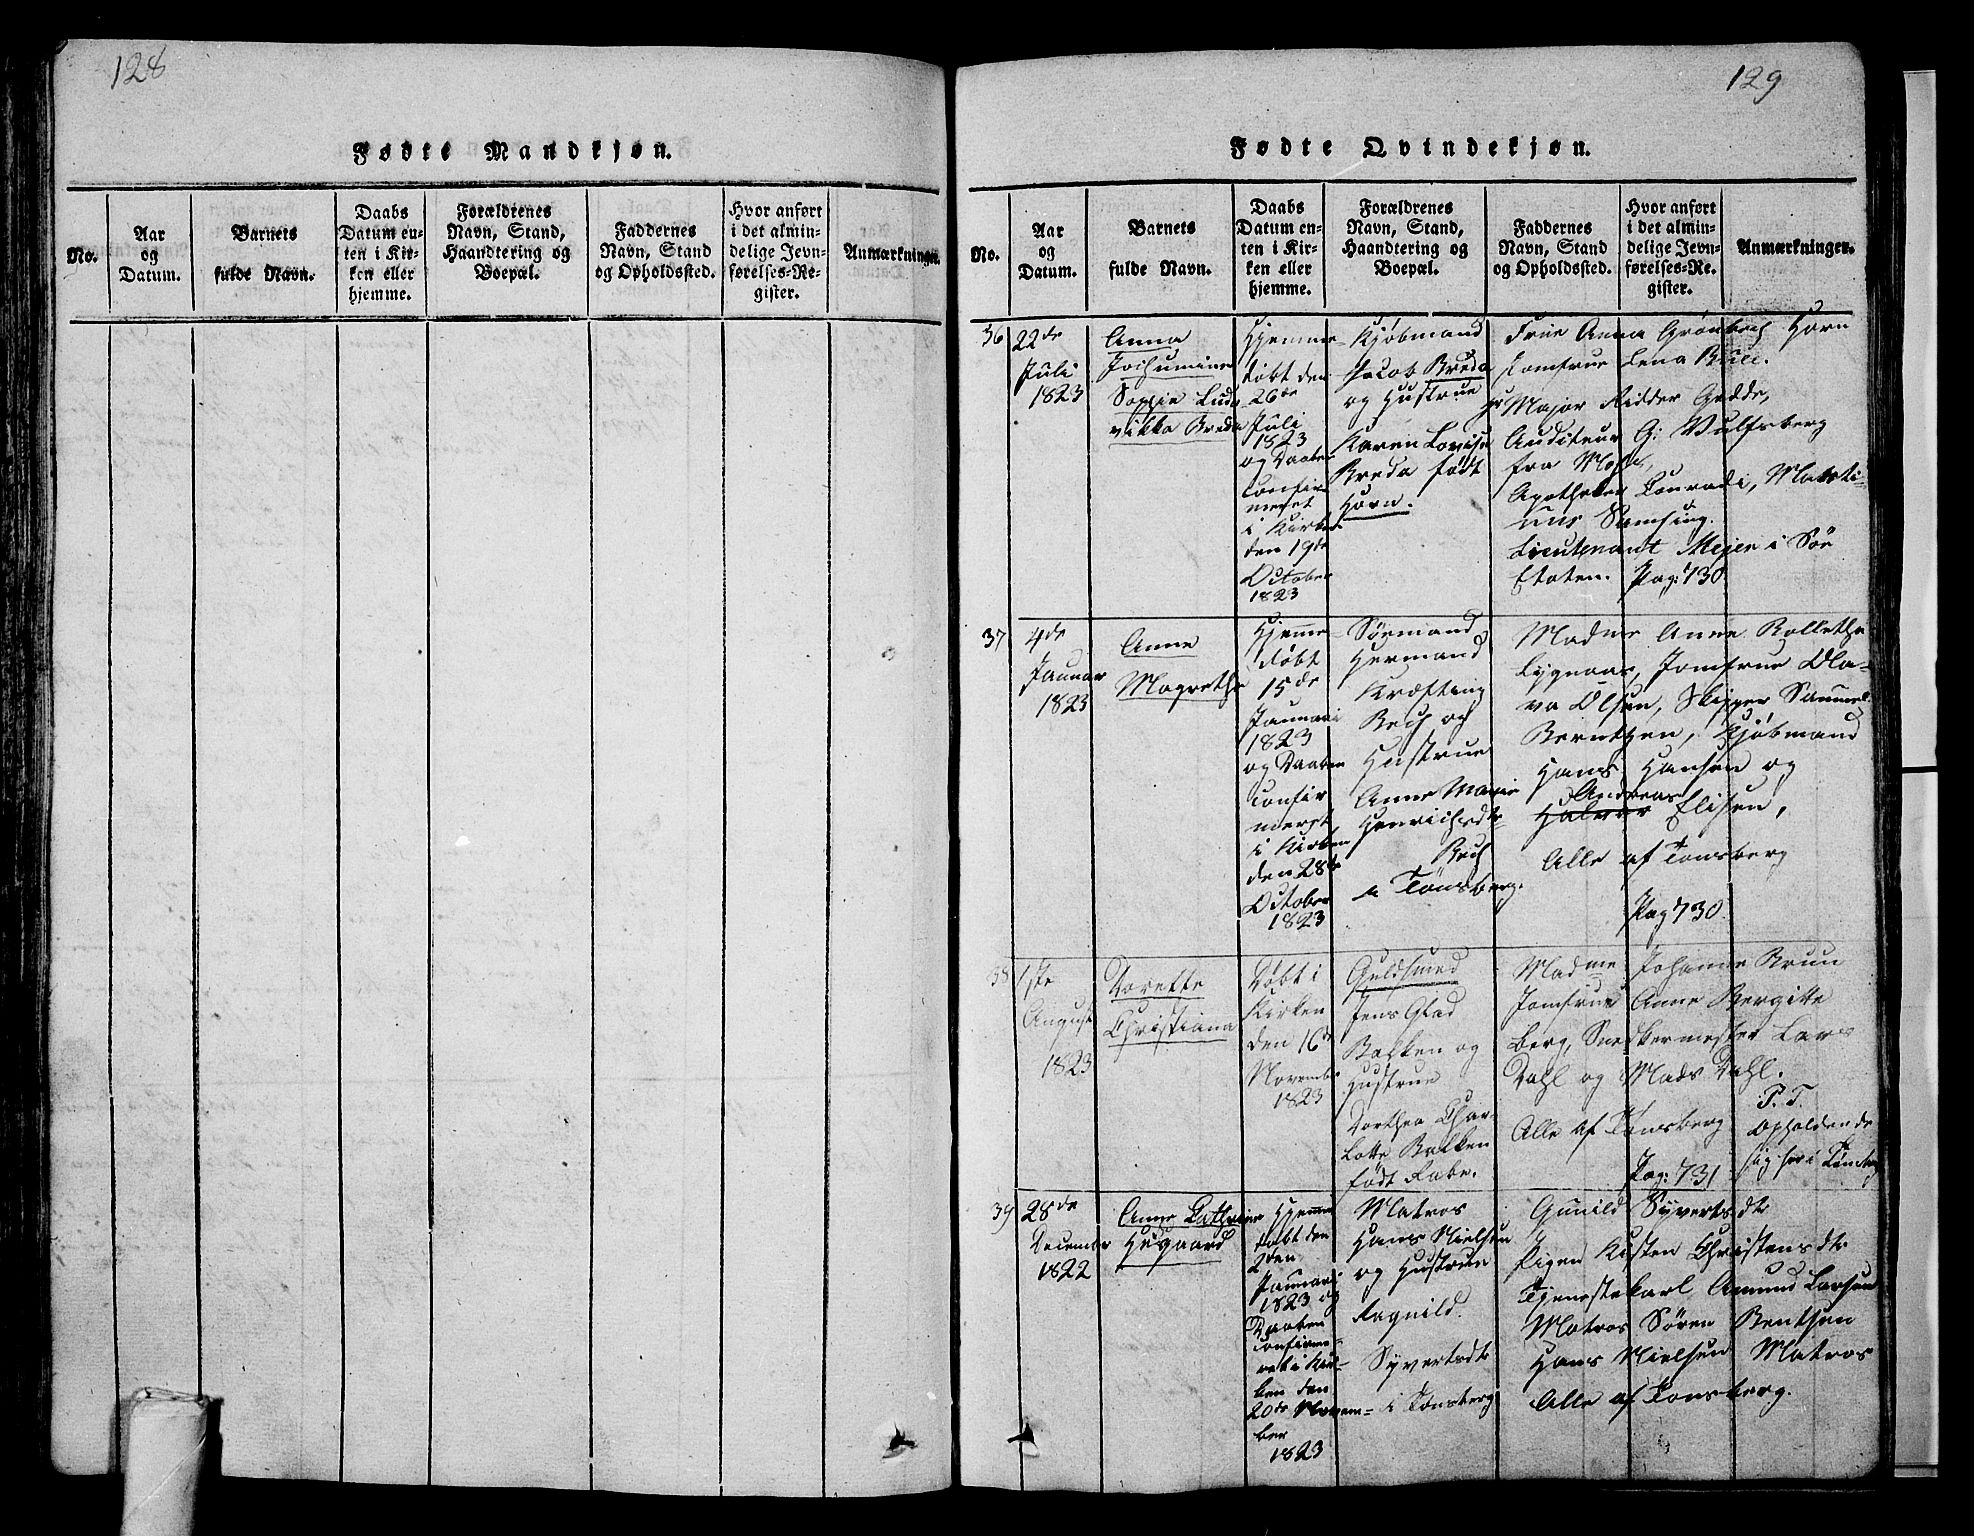 128
Fødte Mandkjøn.
No.
Aar
og
Datum.
Barnets
fulde Navn.
Daabs
Datum en-
ten i Kir-
ken eller
hjemme.
Forældrenes
Navn, Stand,
Haandtering og
Boepæl.
Faddernes
Navn, Stand
og Opholdssted.
Hvor anført
i det almin-
delige Jevn-
førelses-Re-
gister.
Anmærkninger.
129
Fødte Qvindekjøn.
No.
Aar
og
Datum.
Barnets
fulde Navn.
Daabs
Datum en-
ten i Kir-
ken eller
hjemme.
Forældrenes
Navn, Stand,
Haandtering og
Boepæl.
Faddernes
Navn, Stand
og Opholdssted.
Hvor anført
i det almin-
delige Jevn-
førelses-Re-
gister.
Anmærkninger.
36
22de
Juli
1823
Anna
Jochumine
Sophie Ludo
vikka Breda
Hjemme
døbt den
26de
Juli
1823
og Daaben
confir
meret
i Kirken
den 19de
October
1823
Kjøbmand
Jacob Breda
og Hustrue
Karen Lovise
Breda født
Horn.
Frue Anna Grønbech Horn
Jomfrue Lena Bull.
Major Ridder Gedde,
Auditeur G: Vulfsberg
fra Moss,
Apotheker Conradi, Marti-
nus Samsing.
Lieutenant Mejer i Søe
Etaten. Pag: 730
37
4de
Januar
1823
Anne
Magrethe
Hjemme
døbt
15de
Januari
1823
og Daaben
confir
meret
i Kirken
den 28de
October
1823
Søemand
Hermand
Kræfting
Bech og
Hustrue
Anne Marie
Henrichsdtr
Bech
a Tönsberg.
Madme Anne Bollethe
Lygnaas, Jomfrue Ola-
va Olsen, Skipper Samuel
Berntzen, Kjøbmand
Hans Hansen og
Andreas
Halvor Elisen,
Alle af Tonsberg
Pag 730
38
1ste
August
1823
Dorette
Christiana
Døbt i
Kirken
den 16de
Novembr
1823
Guldsmed
Jens Glad
Bakken og
Hustrue
Dorthea Char-
lotte Bakken
født Rabe.
Madme Johanne Bruun
Jomfrue Anne Bergitte
Berg, Snedkermester Lars
Dahl og Mads Dahl.
Alle af Tönsberg
Pag: 731
P. T.
Opholdende
sig her i Tönsberg
39
28de
December
1822
Anne Cathrine
Hegaard
Hjemme
døbt den
2den
Januari
1823 og
Daaben
confirme-
ret i Kir-
ken den
20de Novem-
ber
1823
Matros
Hans Nielsen
og Hustrue
Ragnild
Syvertsdtr
i Tönsberg
Gunild Syvertsdtr
Pigen Kisten Christensdtr
Tjenestekarl Amund Larsen
Matros Sören Bentsen
Hans Nielsen Matros
Alle af Tonsberg.